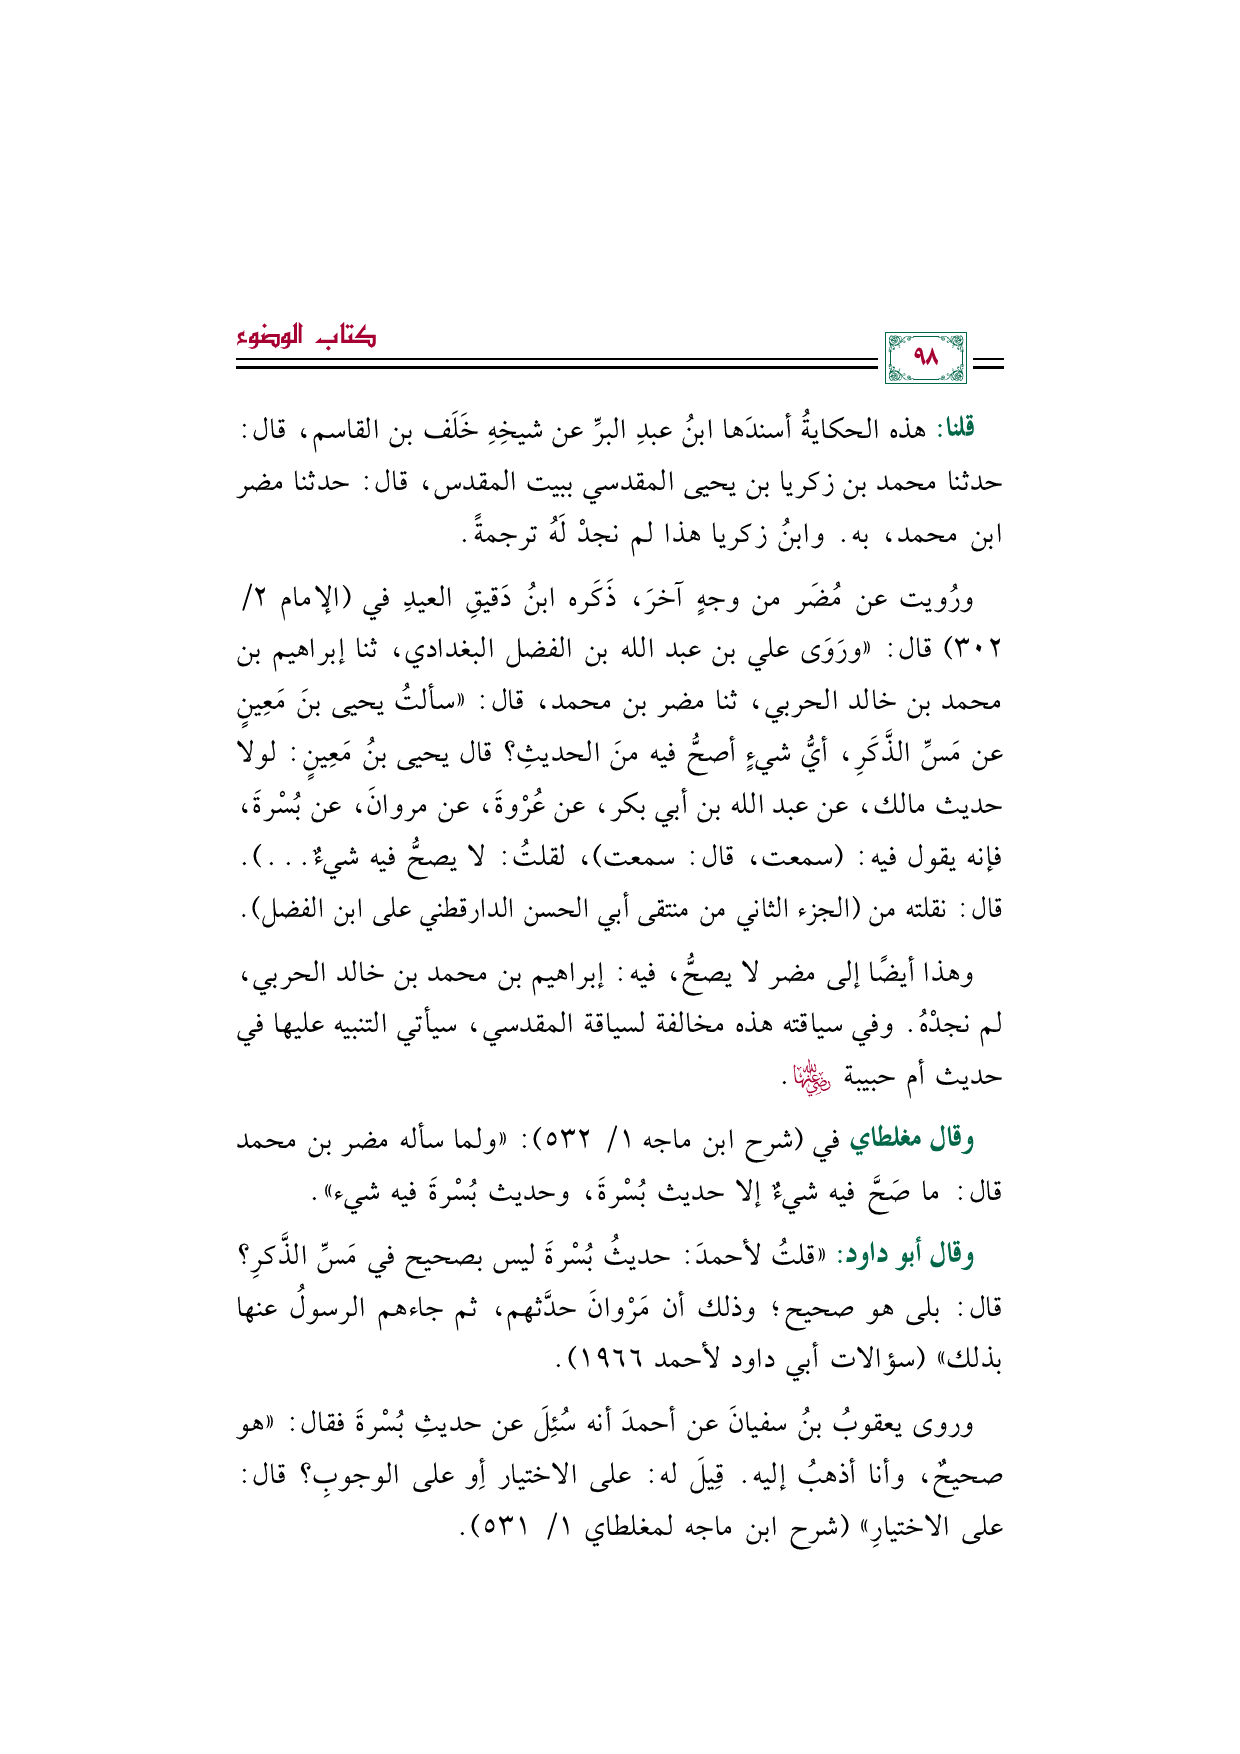 كتاب الوضوء
٩٨
قلنا: هذه الحكايةُ أسندَها ابنُ عبدِ البرِّ عن شيخِهِ خَلَف بن القاسم، قال:
حدثنا محمد بن زكريا بن يحيى المقدسي ببيت المقدس، قال: حدثنا مضر
ابن محمد، به. وابنُ زكريا هذا لم نجدْ لَهُ ترجمةً.
ورُويت عن مُضَر من وجهٍ آخرَ، ذَكَره ابنُ دَقيقِ العيدِ في (الإمام ٢/
٣٠٢) قال: «ورَوَى علي بن عبد الله بن الفضل البغدادي، ثنا إبراهيم بن
محمد بن خالد الحربي، ثنا مضر بن محمد، قال: «سألتُ يحيى بنَ مَعِينٍ
عن مَسِّ الذَّكَرِ، أيُّ شيءٍ أصحُّ فيه منَ الحديثِ؟ قال يحيى بنُ مَعِينٍ: لولا
حديث مالك، عن عبد الله بن أبي بكر، عن عُرْوةَ، عن مروانَ، عن بُسْرةَ،
فإنه يقول فيه: (سمعت، قال: سمعت)، لقلتُ: لا يصحُّ فيه شيءٌ...).
قال: نقلته من (الجزء الثاني من منتقى أبي الحسن الدارقطني على ابن الفضل).
وهذا أيضًا إلى مضر لا يصحُّ، فيه: إبراهيم بن محمد بن خالد الحربي،
لم نجدْهُ. وفي سياقته هذه مخالفة لسياقة المقدسي، سيأتي التنبيه عليها في
حديث أم حبيبة رضي الله عنها.
وقال مغلطاي في (شرح ابن ماجه ١/ ٥٣٢): «ولما سأله مضر بن محمد
قال: ما صَحَّ فيه شيءٌ إلا حديث بُسْرةَ، وحديث بُسْرةَ فيه شيء».
وقال أبو داود: «قلتُ لأحمدَ: حديثُ بُسْرةَ ليس بصحيح في مَسِّ الذَّكرِ؟
قال: بلى هو صحيح؛ وذلك أن مَرْوانَ حدَّثهم، ثم جاءهم الرسولُ عنها
بذلك» (سؤالات أبي داود لأحمد ١٩٦٦).
وروى يعقوبُ بنُ سفيانَ عن أحمدَ أنه سُئِلَ عن حديثِ بُسْرةَ فقال: «هو
صحيحٌ، وأنا أذهبُ إليه. قِيلَ له: على الاختيار أَوِ على الوجوبِ؟ قال:
على الاختيارِ» (شرح ابن ماجه لمغلطاي ١/ ٥٣١).